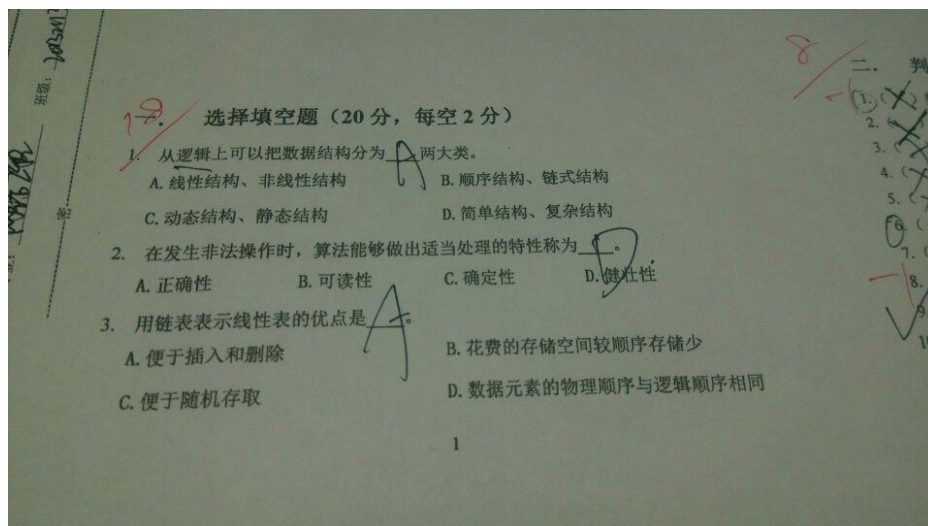 班级：
密
选择填空题（20 分，每空 2 分）
1. 从逻辑上可以把数据结构分为 A 两大类。
A. 线性结构、非线性结构 B. 顺序结构、链式结构
C. 动态结构、静态结构 D. 简单结构、复杂结构
2. 在发生非法操作时，算法能够做出适当处理的特性称为 D 。
A. 正确性 B. 可读性 C. 确定性 D. 健壮性
3. 用链表表示线性表的优点是 A 。
A. 便于插入和删除 B. 花费的存储空间较顺序存储少
C. 便于随机存取 D. 数据元素的物理顺序与逻辑顺序相同
1
8
二. 判
1. (
2.
3. (
4. (
5. (
6. (
7. (
8.
9